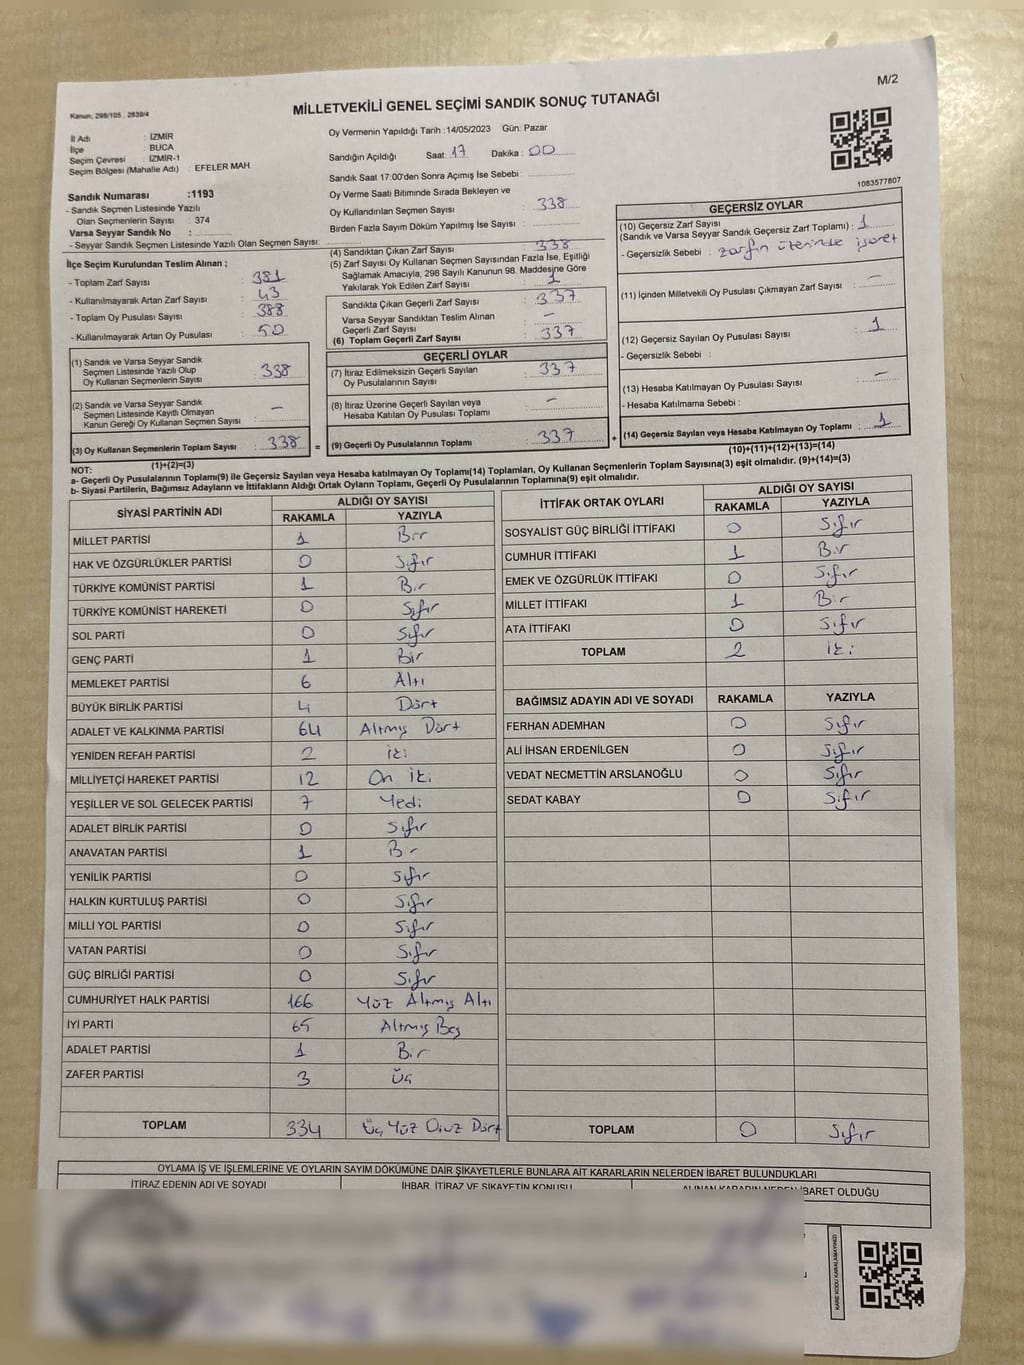 M/2
Kanun; 298/105 , 2839/4
MİLLETVEKİLİ GENEL SEÇİMİ SANDIK SONUÇ TUTANAĞI
İl Adı : İZMİR
İlçe BUCA
Seçim Çevresi : İZMİR-1
Seçim Bölgesi (Mahalle Adı) : EFELER MAH.
Sandık Numarası :1193
- Sandık Seçmen Listesinde Yazılı
Olan Seçmenlerin Sayısı : 374
Varsa Seyyar Sandık No :
- Seyyar Sandık Seçmen Listesinde Yazılı Olan Seçmen Sayısı:
Oy Vermenin Yapıldığı Tarih : 14/05/2023 Gün: Pazar
Sandığın Açıldığı Saat: 17 Dakika : 00
Sandık Saat 17:00'den Sonra Açımış İse Sebebi :
Oy Verme Saati Bitiminde Sırada Bekleyen ve
Oy Kullandırılan Seçmen Sayısı : 338
Birden Fazla Sayım Döküm Yapılmış İse Sayısı :
1083577807
İlçe Seçim Kurulundan Teslim Alınan ;
- Toplam Zarf Sayısı : 381
- Kullanılmayarak Artan Zarf Sayısı : 43
- Toplam Oy Pusulası Sayısı : 388
- Kullanılmayarak Artan Oy Pusulası : 50
(1) Sandık ve Varsa Seyyar Sandık
Seçmen Listesinde Yazılı Olup
Oy Kullanan Seçmenlerin Sayısı : 338
(2) Sandık ve Varsa Seyyar Sandık
Seçmen Listesinde Kayıtlı Olmayan
Kanun Gereği Oy Kullanan Seçmen Sayısı : -
(3) Oy Kullanan Seçmenlerin Toplam Sayısı : 338 =
(1)+(2)=(3)
(4) Sandıktan Çıkan Zarf Sayısı : 338
(5) Zarf Sayısı Oy Kullanan Seçmen Sayısından Fazla İse, Eşitliği
Sağlamak Amacıyla, 298 Sayılı Kanunun 98. Maddesine Göre
Yakılarak Yok Edilen Zarf Sayısı : 1
Sandıkta Çıkan Geçerli Zarf Sayısı : 337
Varsa Seyyar Sandıktan Teslim Alınan
Geçerli Zarf Sayısı : -
(6) Toplam Geçerli Zarf Sayısı : 337
GEÇERLİ OYLAR
(7) İtiraz Edilmeksizin Geçerli Sayılan
Oy Pusulalarının Sayısı : 337
(8) İtiraz Üzerine Geçerli Sayılan veya
Hesaba Katılan Oy Pusulası Toplamı : -
(9) Geçerli Oy Pusulalarının Toplamı : 337 +
GEÇERSİZ OYLAR
(10) Geçersiz Zarf Sayısı
(Sandık ve Varsa Seyyar Sandık Geçersiz Zarf Toplamı) : 1
- Geçersizlik Sebebi : zarfın üzerinde işaret
(11) İçinden Milletvekili Oy Pusulası Çıkmayan Zarf Sayısı : -
(12) Geçersiz Sayılan Oy Pusulası Sayısı : 1
- Geçersizlik Sebebi :
(13) Hesaba Katılmayan Oy Pusulası Sayısı : -
- Hesaba Katılmama Sebebi :
(14) Geçersiz Sayılan veya Hesaba Katılmayan Oy Toplamı : 1
(10)+(11)+(12)+(13)=(14)
NOT:
a- Geçerli Oy Pusulalarının Toplamı(9) ile Geçersiz Sayılan veya Hesaba katılmayan Oy Toplamı(14) Toplamları, Oy Kullanan Seçmenlerin Toplam Sayısına(3) eşit olmalıdır. (9)+(14)=(3)
b- Siyasi Partilerin, Bağımsız Adayların ve İttifakların Aldığı Ortak Oyların Toplamı, Geçerli Oy Pusulalarının Toplamına(9) eşit olmalıdır.
SİYASİ PARTİNİN ADI ALDIĞI OY SAYISI
RAKAMLA YAZIYLA
MİLLET PARTİSİ 1 Bir
HAK VE ÖZGÜRLÜKLER PARTİSİ 0 Sıfır
TÜRKİYE KOMÜNİST PARTİSİ 1 Bir
TÜRKİYE KOMÜNİST HAREKETİ 0 Sıfır
SOL PARTİ 0 Sıfır
GENÇ PARTİ 1 Bir
MEMLEKET PARTİSİ 6 Altı
BÜYÜK BİRLİK PARTİSİ 4 Dört
ADALET VE KALKINMA PARTİSİ 64 Altmış Dört
YENİDEN REFAH PARTİSİ 2 iki
MİLLİYETÇİ HAREKET PARTİSİ 12 On iki
YEŞİLLER VE SOL GELECEK PARTİSİ 7 Yedi
ADALET BİRLİK PARTİSİ 0 Sıfır
ANAVATAN PARTİSİ 1 Bir
YENİLİK PARTİSİ 0 Sıfır
HALKIN KURTULUŞ PARTİSİ 0 Sıfır
MİLLİ YOL PARTİSİ 0 Sıfır
VATAN PARTİSİ 0 Sıfır
GÜÇ BİRLİĞİ PARTİSİ 0 Sıfır
CUMHURİYET HALK PARTİSİ 166 Yüz Altmış Altı
İYİ PARTİ 65 Altmış Beş
ADALET PARTİSİ 1 Bir
ZAFER PARTİSİ 3 Üç
TOPLAM 334 Üç Yüz Otuz Dört
İTTİFAK ORTAK OYLARI ALDIĞI OY SAYISI
RAKAMLA YAZIYLA
SOSYALİST GÜÇ BİRLİĞİ İTTİFAKI 0 Sıfır
CUMHUR İTTİFAKI 1 Bir
EMEK VE ÖZGÜRLÜK İTTİFAKI 0 Sıfır
MİLLET İTTİFAKI 1 Bir
ATA İTTİFAKI 0 Sıfır
TOPLAM 2 iki
BAĞIMSIZ ADAYIN ADI VE SOYADI RAKAMLA YAZIYLA
FERHAN ADEMHAN 0 Sıfır
ALİ İHSAN ERDENİLGEN 0 Sıfır
VEDAT NECMETTİN ARSLANOĞLU 0 Sıfır
SEDAT KABAY 0 Sıfır
TOPLAM 0 Sıfır
OYLAMA İŞ VE İŞLEMLERİNE VE OYLARIN SAYIM DÖKÜMÜNE DAİR ŞİKAYETLERLE BUNLARA AİT KARARLARIN NELERDEN İBARET BULUNDUKLARI
İTİRAZ EDENİN ADI VE SOYADI İHBAR, İTİRAZ VE ŞİKAYETİN KONUSU ALINAN KARARIN NEDEN İBARET OLDUĞU
KARE KODU KARALAMAYINIZ!